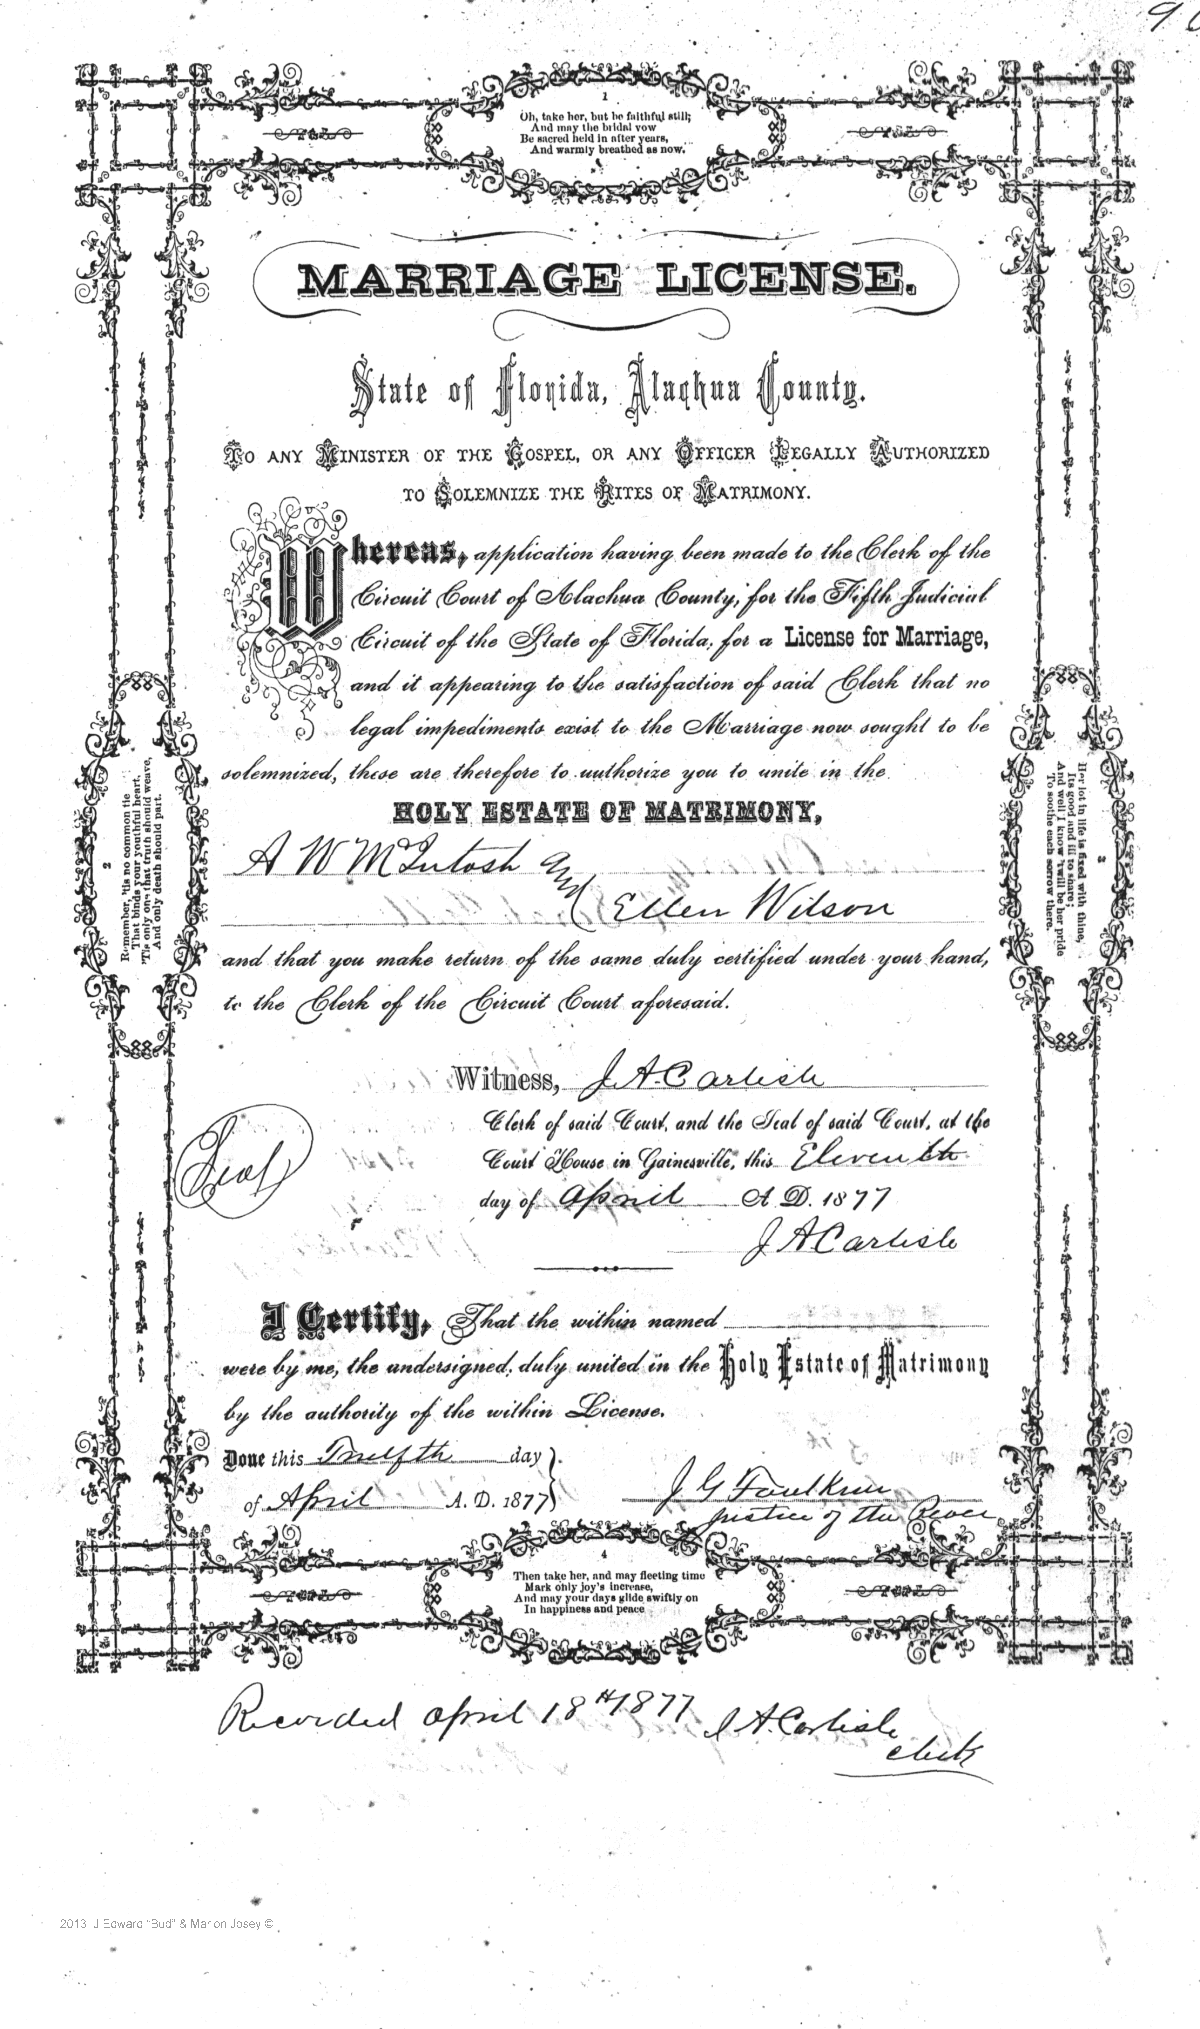 1
Oh, take her, but be faithful still;
And may the bridal vow
Be sacred held in after years,
And warmly breathed as now.
MARRIAGE LICENSE.
State of Florida, Alachua County.
TO ANY MINISTER OF THE GOSPEL, OR ANY OFFICER LEGALLY AUTHORIZED
TO SOLEMNIZE THE RITES OF MATRIMONY.
Whereas, application having been made to the Clerk of the
Circuit Court of Alachua County, for the Fifth Judicial
Circuit of the State of Florida, for a License for Marriage,
and it appearing to the satisfaction of said Clerk that no
legal impediments exist to the Marriage now sought to be
solemnized, these are therefore to authorize you to unite in the
HOLY ESTATE OF MATRIMONY,
A W McIntosh and
Ellen Wilson
and that you make return of the same duly certified under your hand,
to the Clerk of the Circuit Court aforesaid.
2
Remember, 'tis no common tie
That binds your youthful heart,
'Tis only one that truth should weave,
And only death should part.
3
Her lot in life is fixed with thine,
Its good and ill to share;
And well I know 'twill be her pride
To soothe each sorrow there.
Witness, J. A. Carlisle
Clerk of said Court, and the Seal of said Court, at the
Court House in Gainesville, this Eleventh
day of April A. D. 1877
Seal
J A Carlisle
I Certify, That the within named
were by me, the undersigned, duly united in the Holy Estate of Matrimony
by the authority of the within License.
Done this Twelfth day
of April A. D. 1877
J G Faulkner
Justice of the Peace
4
Then take her, and may fleeting time
Mark only joy's increase,
And may your days glide swiftly on
In happiness and peace
Recorded April 18th 1877 J. A. Carlisle
clerk
2013 J Edward "Bud" & Marion Josey ©